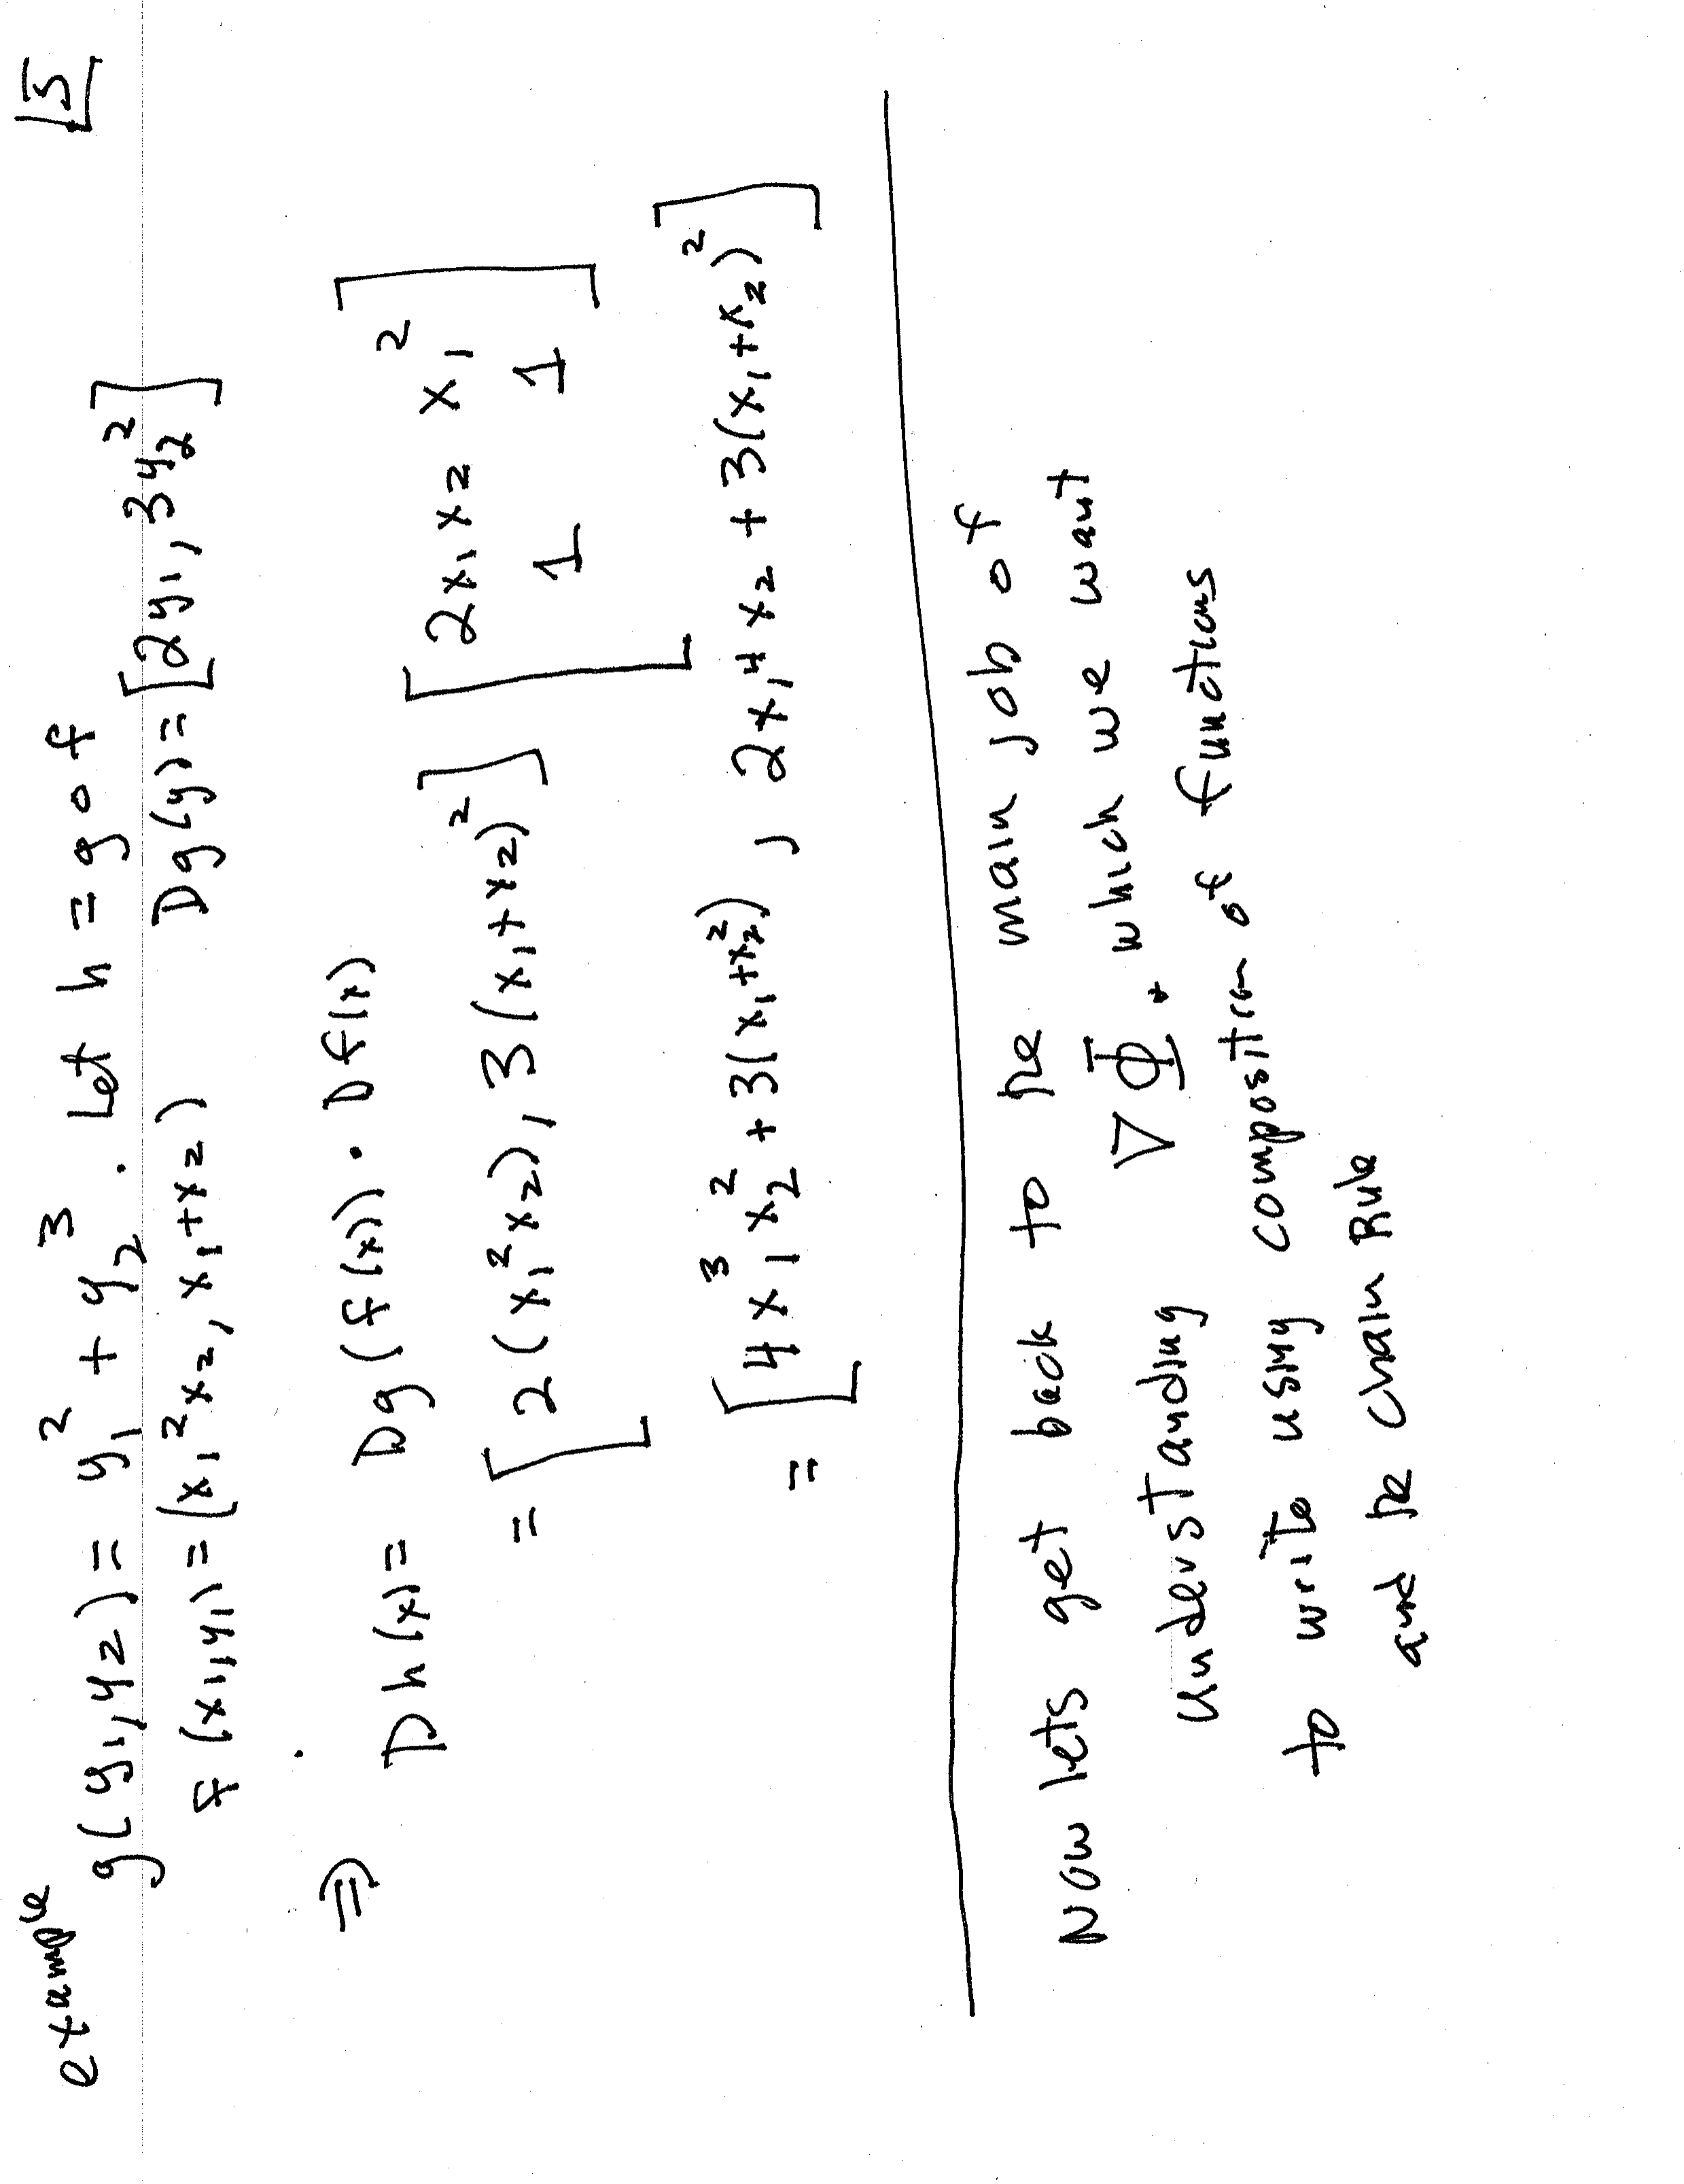 example 5
g(y₁,y₂) = y₁² + y₂³. Let h = g o f
f(x₁,y₁) = (x₁²x₂, x₁+x₂) Dg(y) = [2y₁, 3y₂²]
⇒ Dh(x) = Dg(f(x)) · Df(x)
= [2(x₁²x₂), 3(x₁+x₂)²] [2x₁x₂ x₁²
1 1]
= [4x₁³x₂² + 3(x₁+x₂²), 2x₁⁴x₂ + 3(x₁+x₂)²]
Now lets get back to the main job of
understanding ∇Φ, which we want
to write using composition of functions
and the Chain Rule